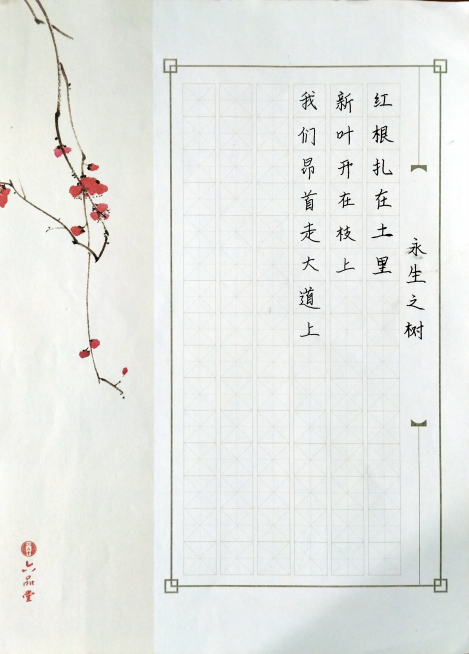 永生之树
红根扎在土里
新叶开在枝上
我们昂首走大道上
六品堂